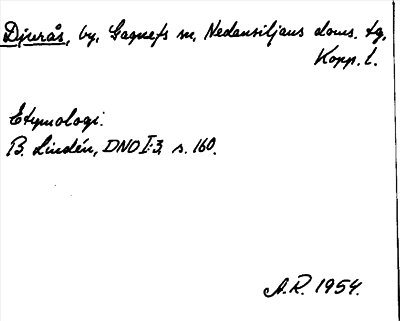 Djurås, by, Gagnefs sn, Nedansiljans doms. tg,
Kopp. l.
Etymologi.
B. Lindén, DNO I:3, s. 160.
A.R. 1954.